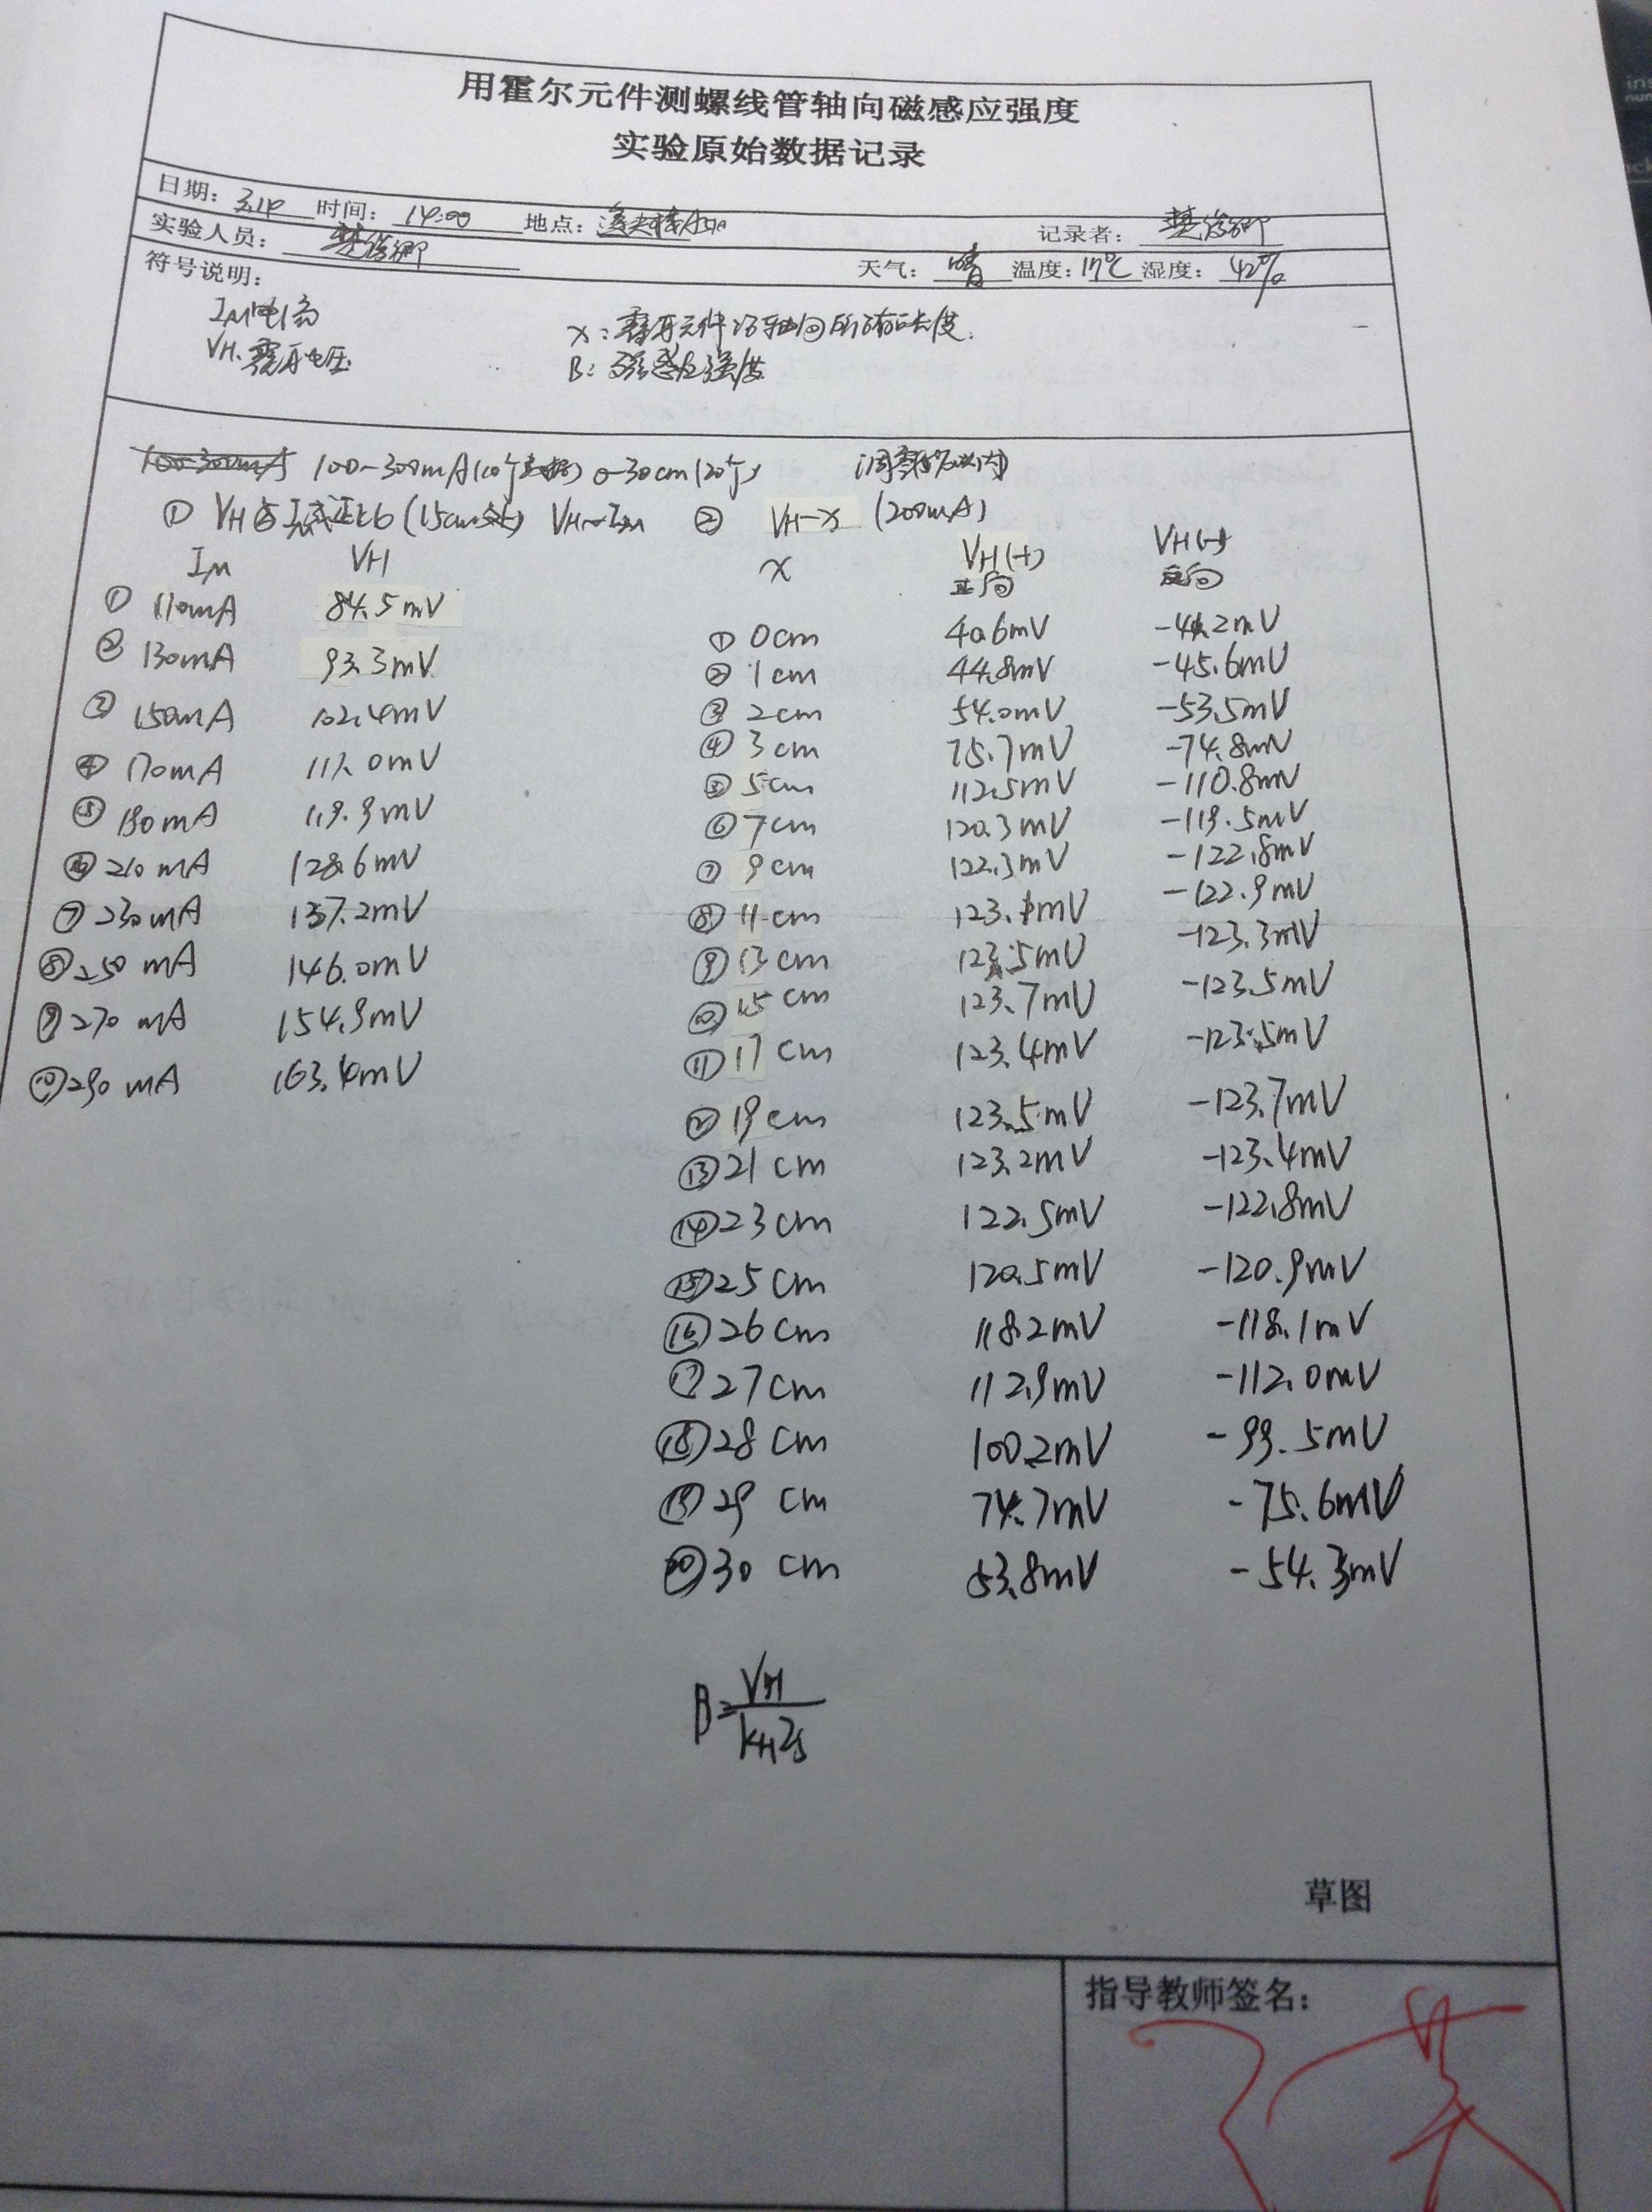 用霍尔元件测螺线管轴向磁感应强度
实验原始数据记录
日期: 3.14 时间: 14:00 地点:
记录者:
实验人员:
天气: 晴 温度: 17℃ 湿度: 42%
符号说明:
IM电流 x: 霍尔元件 轴向所 长度.
VH. 霍尔电压 B: 磁感应强度
100-300mA 100-300mA(10个数据) 0-30cm(20个)
① VH与 正比(15cm处) VH~IM ② VH-x (200mA)
IM VH x VH(+) 正向 VH(-) 反向
① 110mA 84.5mV
② 130mA 93.3mV
③ 150mA 102.4mV
④ 170mA 111.0mV
⑤ 190mA 119.9mV
⑥ 210mA 128.6mV
⑦ 230mA 137.2mV
⑧ 250mA 146.0mV
⑨ 270mA 154.9mV
⑩ 290mA 163.4mV
① 0cm 40.6mV
② 1cm 44.8mV -45.6mV
③ 2cm 54.0mV -53.5mV
④ 3cm 75.7mV -74.8mV
⑤ 5cm 112.5mV -110.8mV
⑥ 7cm 120.3mV -119.5mV
⑦ 9cm 122.3mV -122.8mV
⑧ 11cm 123.1mV -122.9mV
⑨ 13cm 123.5mV -123.3mV
⑩ 15cm 123.7mV -123.5mV
⑪ 17cm 123.4mV -123.5mV
⑫ 19cm 123.5mV -123.7mV
⑬ 21cm 123.2mV -123.4mV
⑭ 23cm 122.5mV -122.8mV
⑮ 25cm 120.5mV -120.9mV
⑯ 26cm 118.2mV -118.1mV
⑰ 27cm 112.9mV -112.0mV
⑱ 28cm 100.2mV -99.5mV
⑲ 29cm 74.7mV -75.6mV
⑳ 30cm 53.8mV -54.3mV
B=VH/KHIs
草图
指导教师签名: